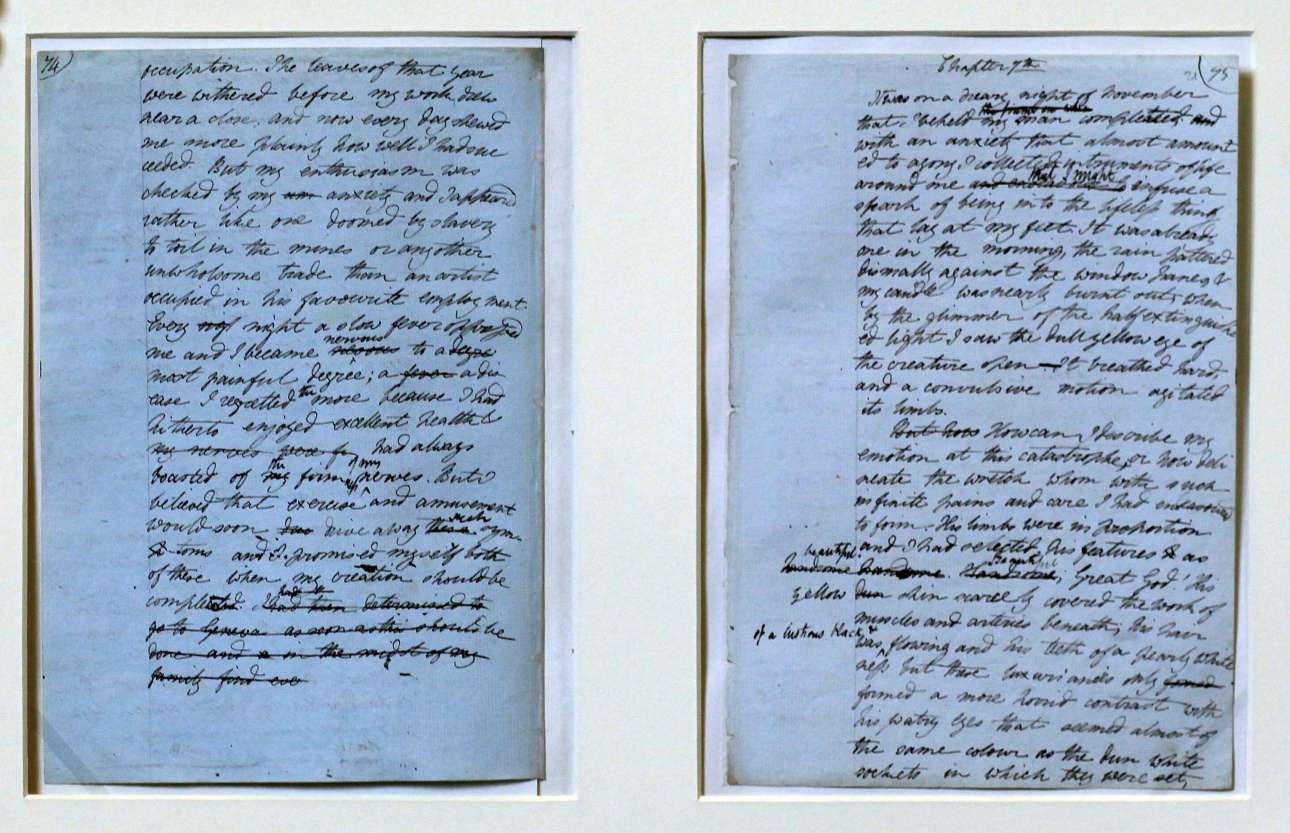 74
occupation. The leaves of that year
were withered before my work drew
near a close, and now every day shewed
me more plainly how well I had suc
ceeded. But my enthusiasm was
checked by my anxiety and I appeared
rather like one doomed by slavery
to toil in the mines or any other
unwholsome trade than an artist
occupied in his favourite employment.
Every night a slow fever oppressed
nervous
me and I became to a degree
most painful degree; a fever a dis
ease I regretted the more because I had
hitherto enjoyed excellent health &
my nerves were had always
boasted of the firmness of my nerves. But I
believed that exercise and amusement
such
would soon drive away these sym
toms and I promised myself both
of these when my creation should be
compleated. I had then determined to
go to Geneva as soon as this should be
done and in the midst of my
family find
75
Chapter 7th
It was on a dreary night of November
the frame on whic
that I beheld my man compleated and
with an anxiety that almost amount
ed to agony I collected instruments of life
that I might
around me and infuse a
spark of being into the lifeless thing
that lay at my feet. It was already
one in the morning, the rain pattered
dismally against the window panes, &
my candle was nearly burnt out, when
by the glimmer of the half extinguish
ed light I saw the dull yellow eye of
the creature open — It breathed hard,
and a convulsive motion agitated
its limbs.
But how How can I describe my
emotion at this catastrophe, or how deli
neate the wretch whom with such
infinite pains and care I had endeavoured
to form. His limbs were in proportion
and I had selected his features as
beautiful
handsome handsome. Handsome; Great God! His
Beautiful
yellow dun skin scarcely covered the work of
muscles and arteries beneath; his hair
of a lustrous black, &
was flowing and his teeth of a pearly white
ness but these luxuriances only formed
formed a more horrid contrast with
his watry eyes that seemed almost of
the same colour as the dun white
sockets in which they were set,